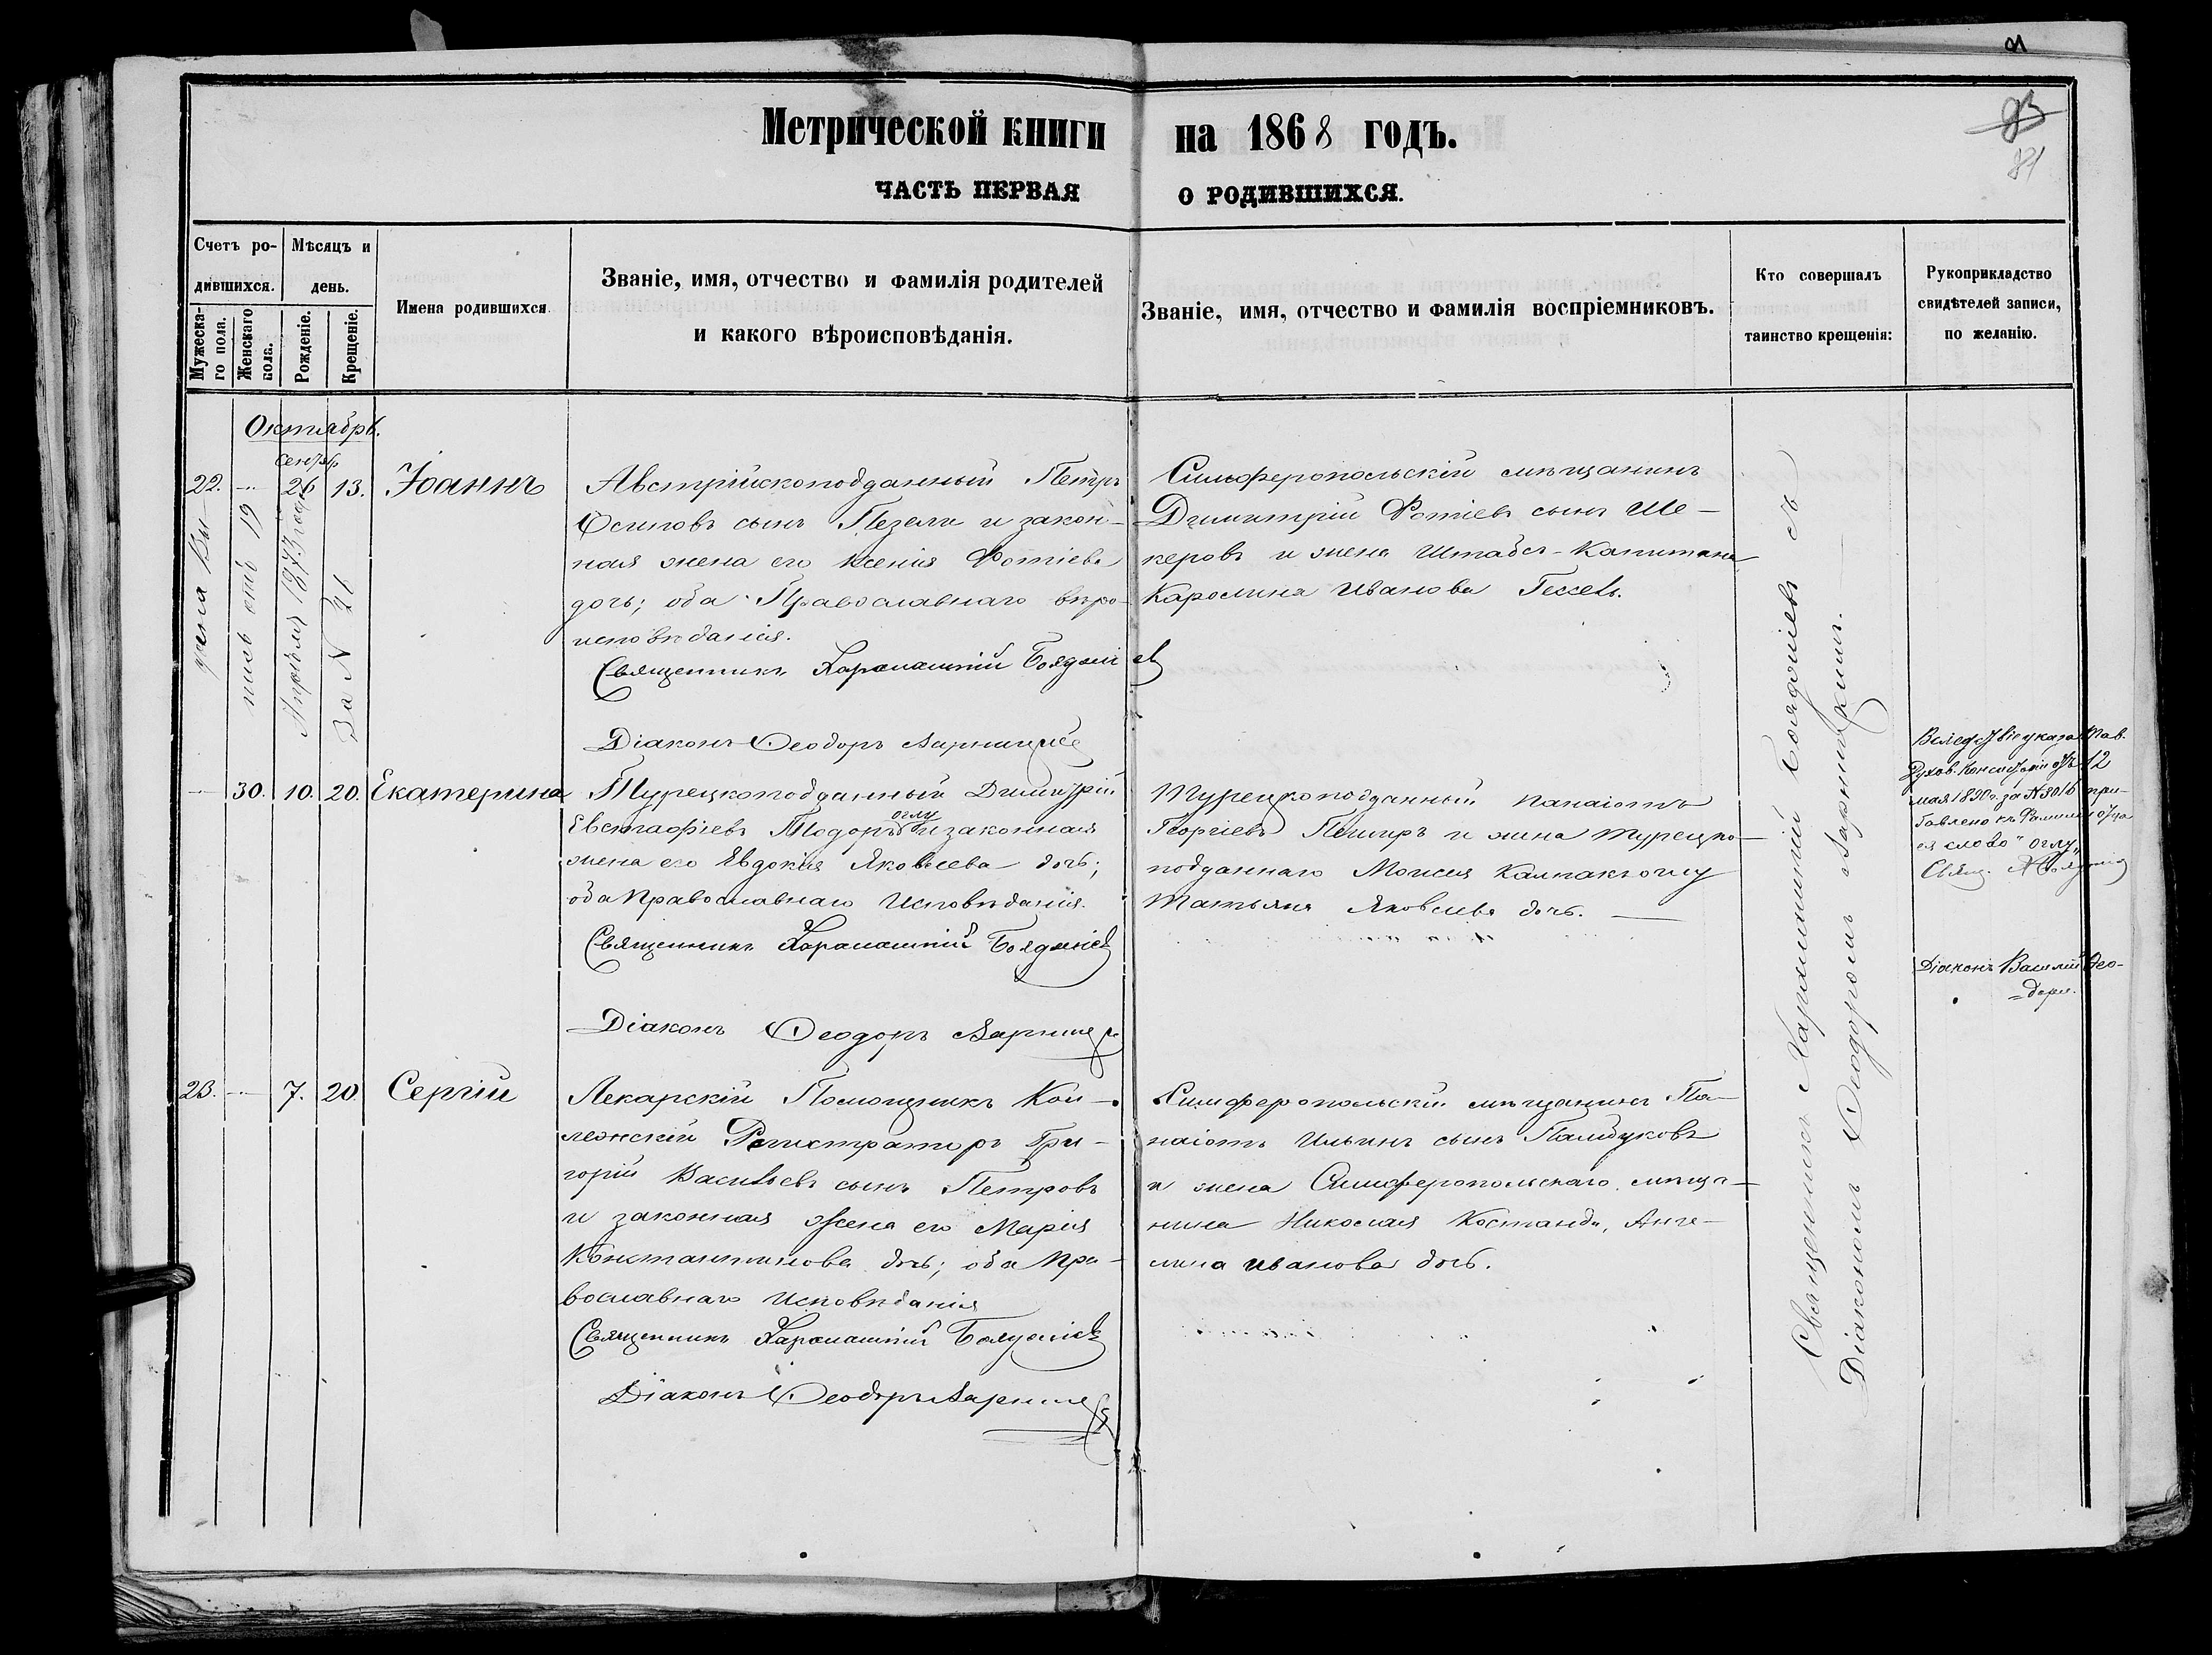 Метрической книги на 1868 годъ.
ЧАСТЬ ПЕРВАЯ О РОДИВШИХСЯ.
Счетъ ро-
дившихся.
Мужеска-
го пола.
Женскаго
пола.
Мѣсяцъ и
день.
Рожденіе.
Крещеніе.
Имена родившихся.
Званіе, имя, отчество и фамилія родителей
и какого вѣроисповѣданія.
Званіе, имя, отчество и фамилія воспріемниковъ.
Кто совершалъ
таинство крещенія:
Рукоприкладство
свидѣтелей записи,
по желанію.
81
Октябрь.
22. 26 13. Іоаннъ
19
За N 21
Австрійскоподданный Петръ
Осиповъ сынъ Пезели и закон-
ная жена его Ксенія Фотіева
дочь; оба Православнаго вѣро-
исповѣданія.
Священникъ Харалампій Бояджіев
Діаконъ Ѳеодоръ
Симферопольскій мѣщанинъ
Димитрій Фотіевъ сынъ Ше-
керовъ и жена Штабсъ-Капитана
Каролина Иванова Гессель.
30. 10. 20. Екатерина
Турецкоподданный Димитрій
оглу
Евстафіевъ Тодоръ и законная
жена его Евдокія Яковлева дочь;
оба Православнаго Исповѣданія.
Священникъ Харалампій Бояджіев
Діаконъ Ѳеодоръ
Турецкоподданный Панаіотъ
Георгіевъ и жена Турецко-
подданнаго Моисея
Татьяна Яковлева дочь.
Вследствіе указа Тав.
Духов. Консисторіи отъ 12
мая 1890 г. за N 3016 при-
бавлено къ Фамиліи отца
ея слово "оглу"
Свящ.
Діаконъ Василій Ѳео-
23. 7. 20. Сергій
Лекарскій Помощникъ Кол-
лежскій Регистраторъ Гри-
горій Васильевъ сынъ Петровъ
и законная Жена его Марія
Константинова дочь; оба Пра-
вославнаго Исповѣданія
Священникъ Харалампій Бояджіев
Діаконъ Ѳеодоръ
Симферопольскій мѣщанинъ Па-
наіотъ Ильинъ сынъ
и жена Симферопольскаго мѣща-
нина Николая Костанди, Анге-
лина Иванова дочь.
Священникъ Харалампій Бояджіевъ съ
Діакономъ Ѳеодоромъ